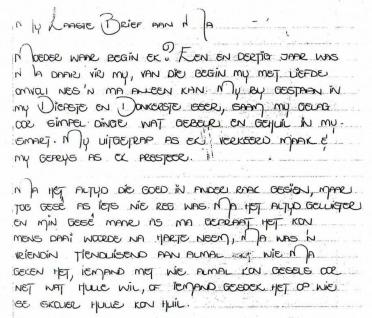 My Laaste Brief aan Ma
Moeder waar begin ek? Een en dertig jaar was
Ma daar vir my, van die begin my met liefde
omvou nes 'n ma alleen kan. My bygestaan in
my Diepste en Donkerste seer, saam my gelag
oor simpel dinge wat gebeur en gehuil in my
smart. My uitgetrap as ek verkeerd maak &
my geprys as ek presteer.
Ma het altyd die goed in ander raak gesien, maar
tog gesê as iets nie reg was. Ma het altyd geluister
en min gesê maar as ma gepraat het kon
mens daai woorde na harte neem, Ma was 'n
vriendin tienduisend aan almal wie Ma
geken het, iemand met wie almal kon gesels oor
net wat hulle wil, of iemand gesoek het op wie
se skouer hulle kon huil.